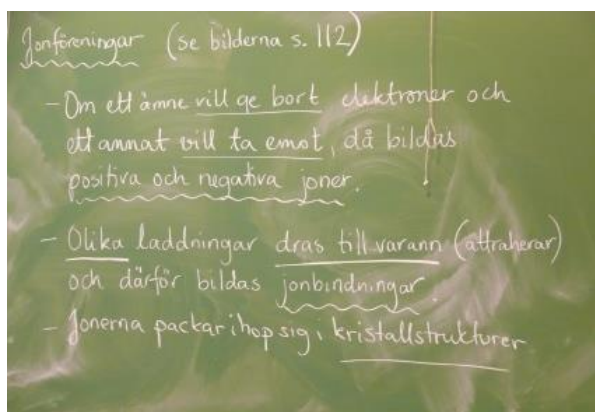 Jonföreningar (se bilderna s. 112)
- Om ett ämne vill ge bort elektroner och
ett annat vill ta emot, då bildas
positiva och negativa joner.
- Olika laddningar dras till varann (attraherar)
och därför bildas jonbindningar.
- Jonerna packar ihop sig i kristallstrukturer